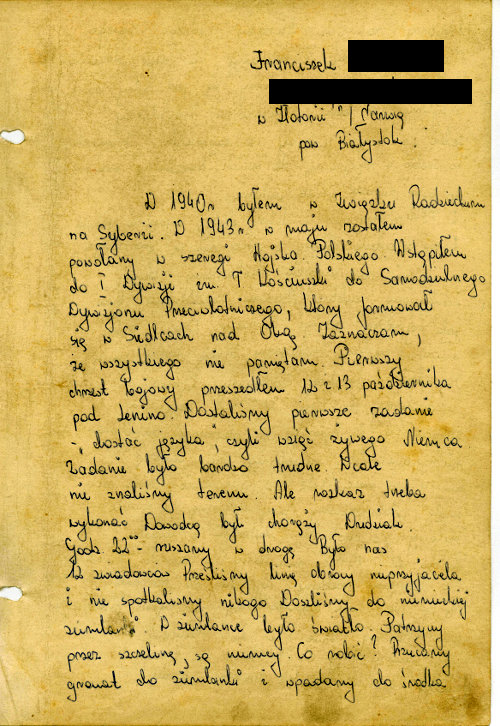 Franciszek
w Złotorii n/Narwią
pow Białystok.
W 1940r byłem w Związku Radzieckim
na Syberii. W 1943r w maju zostałem
powołany w szeregi Wojska Polskiego. Wstąpiłem
do I Dywizji im. T Kościuszki do Samodzielnego
Dywizjonu Przeciwlotniczego, który formował
się w Sielcach nad Oką Zaznaczam,
że wszystkiego nie pamiętam. Pierwszy
chrzest bojowy przeszedłem 12 i 13 października
pod Lenino. Dostaliśmy pierwsze zadanie
- "dostać języka", czyli wziąć żywego Niemca
Zadanie było bardzo trudne. Wcale
nie znaliśmy terenu. Ale rozkaz trzeba
wykonać Dowódcą był chorąży Dudziak.
Godz. 22⁰⁰ - ruszamy w drogę Było nas
12 zwiadowców Przeszliśmy linę obrony nieprzyjaciela
i nie spotkaliśmy nikogo Doszliśmy do niemieckiej
ziemlanki W ziemlance było światło. Patrzymy
przez szczelinę, są niemcy. Co robić? Rzucamy
granat do ziemlanki i wpadamy do środka